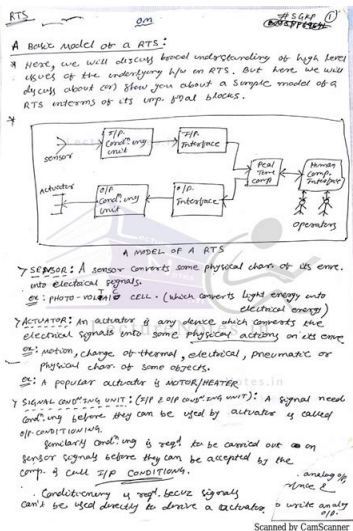 RTS
om
#SGKP
1
A Basic Model of a RTS:
* Here, we will discuss broad understanding of high level
issues of the underlying h/w on RTS. But here we will
discuss about (or) show you about a simple model of a
RTS interms of its imp. f'nal blocks.
*
sensor
I/P.
Condn.ing
unit
I/P.
Interface
Real
Time
comp
Human
Comp.
Interface
Actuator
O/P.
Condn.ing
unit
O/P.
Interface
operators
A MODEL OF A RTS
SENSOR: A sensor converts some physical char. of its envr.
into electrical signals.
ex: PHOTO-VOLTAIC CELL. (which converts light energy into
electrical energy)
ACTUATOR: An actuator is any device which converts the
electrical signals into some physical actions on its envr
ex: Motion, change of thermal, electrical, pneumatic or
physical char of some objects.
ex: A popular actuator is MOTOR/HEATER
SIGNAL CONDn.ING UNIT: (I/P & O/P CONDn.ING UNIT): A signal need
Condn.ing before they can be used by actuator is called
O/P. CONDITIONING.
Similarly Condn.ing is reqd to be carried out on
sensor signals before they can be accepted by the
comp. & call I/P CONDITIONING.
. Conditioning is reqd. becuz signals
can't be used directly to derive a actuator
analog o/p.
write analog
o/p.
Scanned by CamScanner